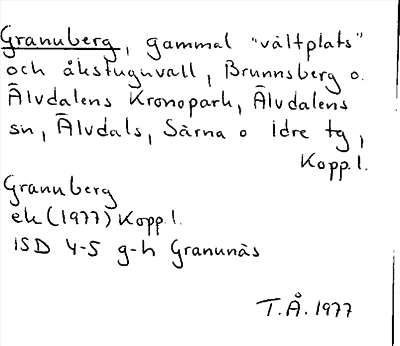 Granuberg, gammal "vältplats"
och åkstuguvall, Brunnsberg o.
Älvdalens Kronopark, Älvdalens
sn, Älvdals, Särna o Idre tg,
Kopp.l.
Granuberg
ek (1977) Kopp.l.
15D 4-5 g-h Granunäs
T.Å. 1977